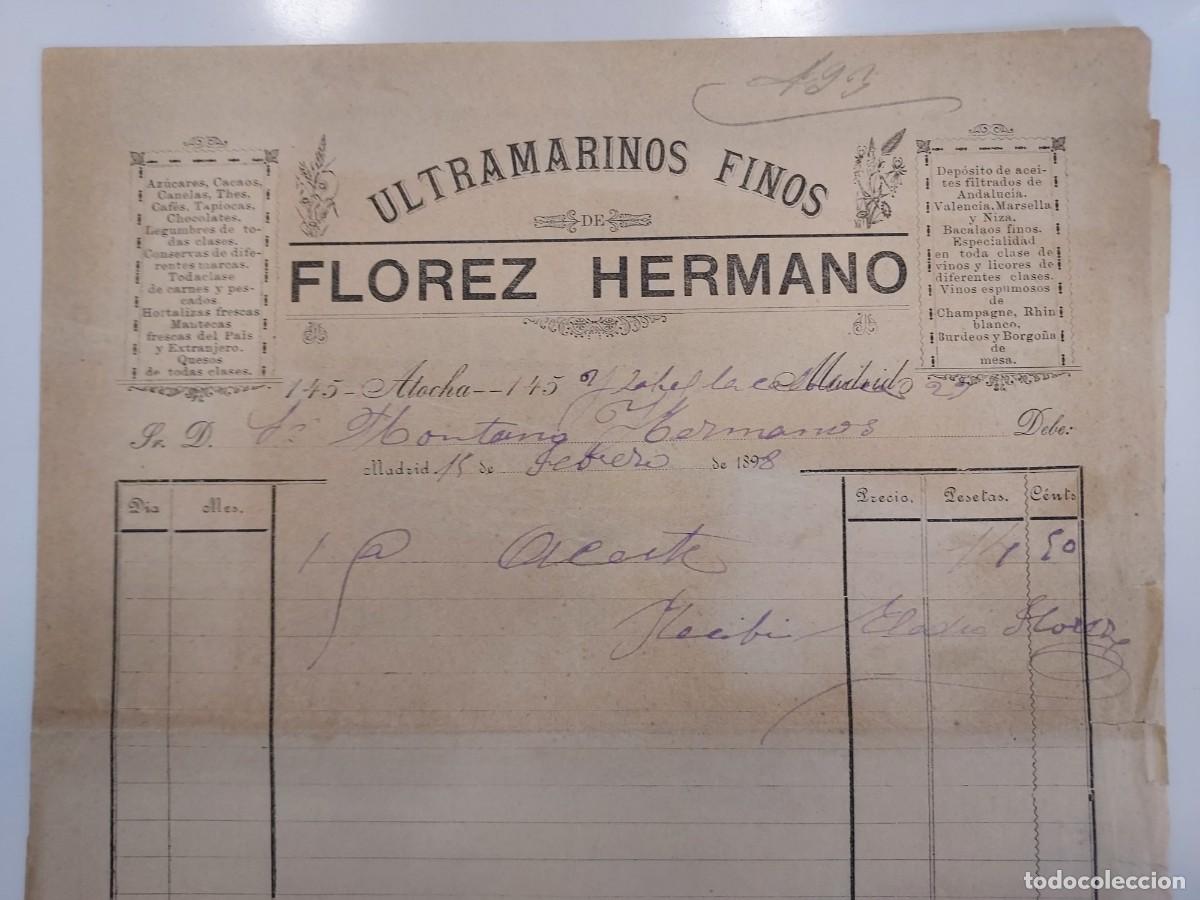 493
ULTRAMARINOS FINOS
DE
FLOREZ HERMANO
Azúcares, Cacaos,
Canelas, Thes,
Cafés, Tapiocas,
Chocolates.
Legumbres de to-
das clases.
Conservas de dife-
rentes marcas.
Toda clase
de carnes y pes-
cados.
Hortalizas frescas
Mantecas
frescas del Pais
y Extranjero.
Quesos
de todas clases.
Depósito de acei-
tes filtrados de
Andalucía,
Valencia, Marsella
y Niza.
Bacalaos finos.
Especialidad
en toda clase de
vinos y licores de
diferentes clases.
Vinos espumosos
de
Champagne, Rhin
blanco,
Burdeos y Borgoña
de
mesa.
145-Atocha--145 Ysabel la Madrid 23
Sr. D. Montano Hermanos Debe:
Madrid 15 de Febrero de 1898
Dia Mes. Precio. Pesetas. Cénts
1 @ Aceite 14 50
Recibi Eladio Florez
todocoleccion